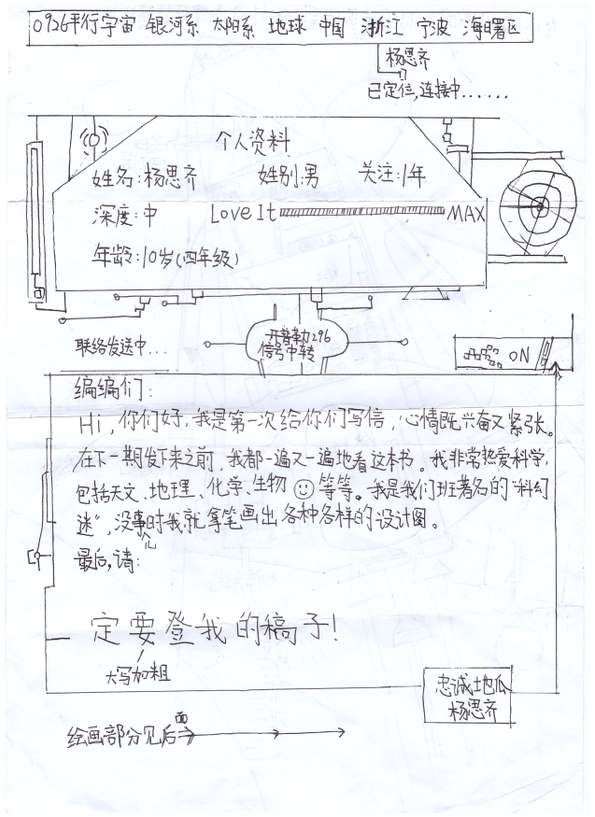 0926平行宇宙 银河系 太阳系 地球 中国 浙江 宁波 海曙区
杨思齐
已定位,连接中......
个人资料
姓名:杨思齐 姓别:男 关注:1年
深度:中 Love It MAX
年龄:10岁(四年级)
联络发送中...
开普勒296
信号中转
ON
编编们:
Hi,你们好,我是第一次给你们写信,心情既兴奋又紧张。
在下一期发下来之前,我都一遍又一遍地看这本书。我非常热爱科学,
包括天文、地理、化学、生物☺等等。我是我们班著名的"科幻
迷",没事儿时我就拿笔画出各种各样的设计图。
最后,请:
一定要登我的稿子!
大写加粗
忠诚地瓜
杨思齐
绘画部分见后面